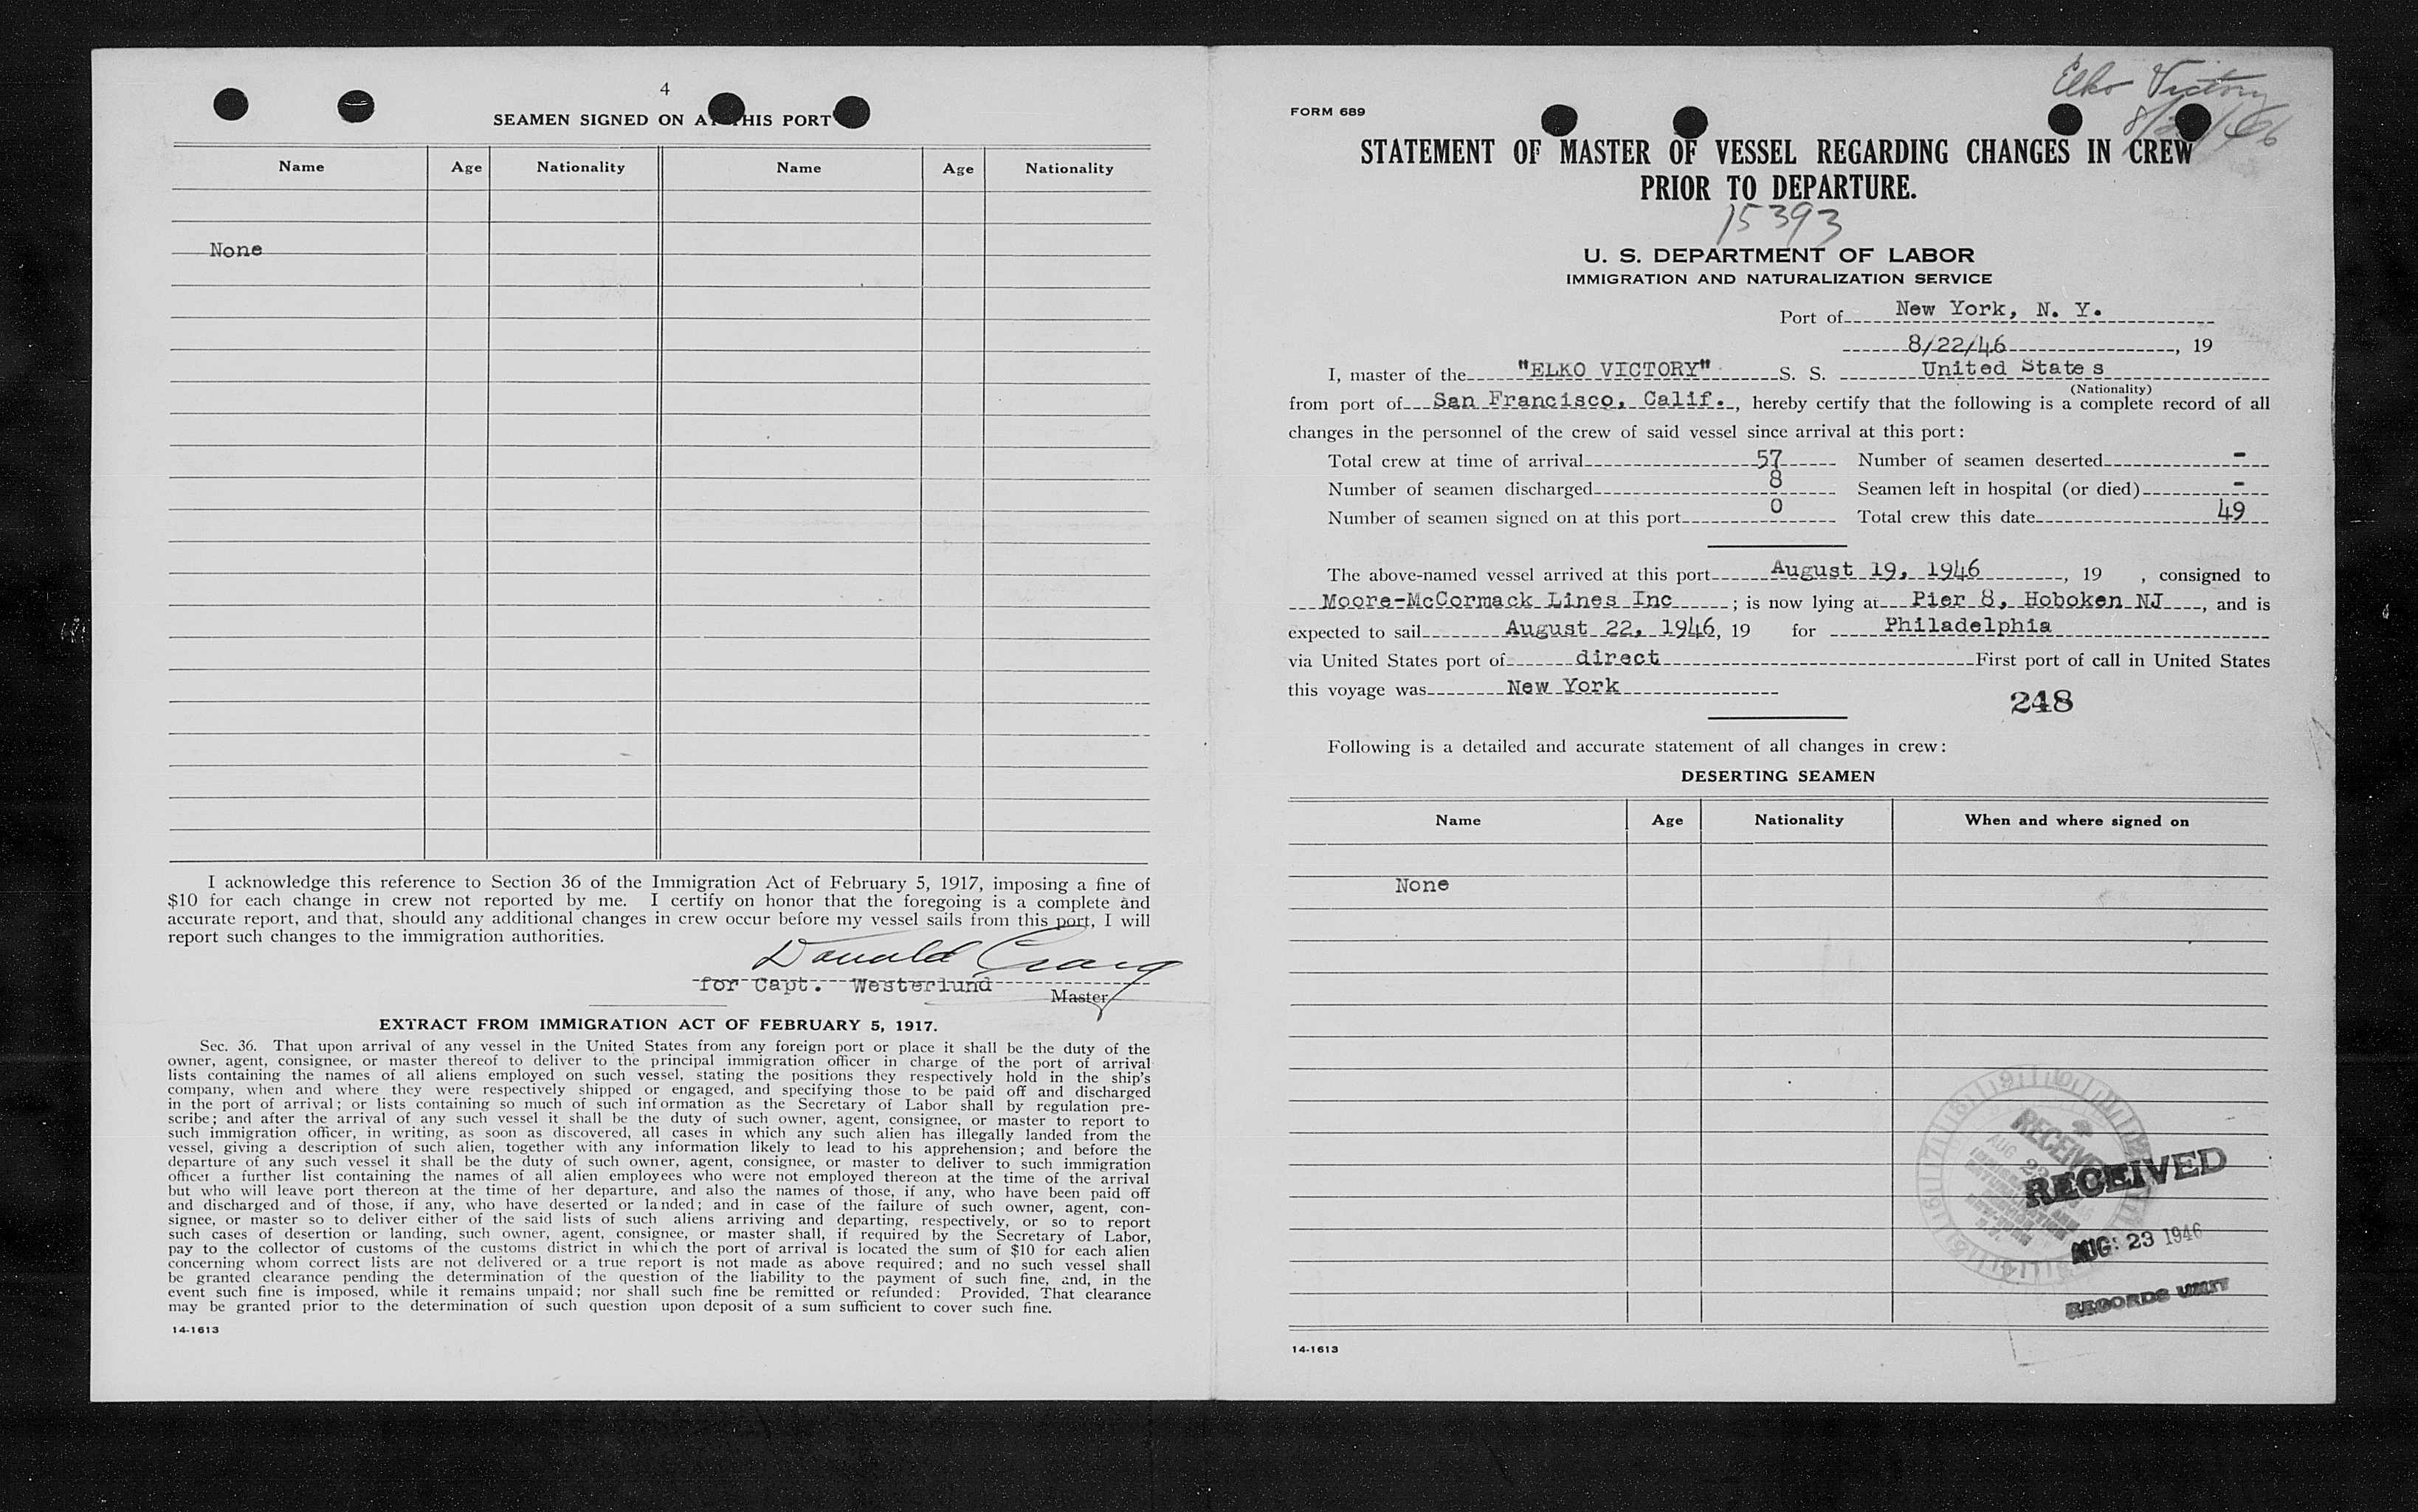 4
SEAMEN SIGNED ON AT THIS PORT
Name Age Nationality Name Age Nationality
None
I acknowledge this reference to Section 36 of the Immigration Act of February 5, 1917, imposing a fine of
$10 for each change in crew not reported by me. I certify on honor that the foregoing is a complete and
accurate report, and that, should any additional changes in crew occur before my vessel sails from this port, I will
report such changes to the immigration authorities.
Donald Craig
for Capt. Westerlund
Master
EXTRACT FROM IMMIGRATION ACT OF FEBRUARY 5, 1917.
Sec. 36. That upon arrival of any vessel in the United States from any foreign port or place it shall be the duty of the
owner, agent, consignee, or master thereof to deliver to the principal immigration officer in charge of the port of arrival
lists containing the names of all aliens employed on such vessel, stating the positions they respectively hold in the ship's
company, when and where they were respectively shipped or engaged, and specifying those to be paid off and discharged
in the port of arrival; or lists containing so much of such information as the Secretary of Labor shall by regulation pre-
scribe; and after the arrival of any such vessel it shall be the duty of such owner, agent, consignee, or master to report to
such immigration officer, in writing, as soon as discovered, all cases in which any such alien has illegally landed from the
vessel, giving a description of such alien, together with any information likely to lead to his apprehension; and before the
departure of any such vessel it shall be the duty of such owner, agent, consignee, or master to deliver to such immigration
officer a further list containing the names of all alien employees who were not employed thereon at the time of the arrival
but who will leave port thereon at the time of her departure, and also the names of those, if any, who have been paid off
and discharged and of those, if any, who have deserted or landed; and in case of the failure of such owner, agent, con-
signee, or master so to deliver either of the said lists of such aliens arriving and departing, respectively, or so to report
such cases of desertion or landing, such owner, agent, consignee, or master shall, if required by the Secretary of Labor,
pay to the collector of customs of the customs district in which the port of arrival is located the sum of $10 for each alien
concerning whom correct lists are not delivered or a true report is not made as above required; and no such vessel shall
be granted clearance pending the determination of the question of the liability to the payment of such fine, and, in the
event such fine is imposed, while it remains unpaid; nor shall such fine be remitted or refunded: Provided, That clearance
may be granted prior to the determination of such question upon deposit of a sum sufficient to cover such fine.
14-1613
Elko Victory
FORM 689
STATEMENT OF MASTER OF VESSEL REGARDING CHANGES IN CREW
PRIOR TO DEPARTURE.
15393
U. S. DEPARTMENT OF LABOR
IMMIGRATION AND NATURALIZATION SERVICE
Port of New York, N. Y.
8/22/46, 19
I, master of the "ELKO VICTORY" S. S. United States
(Nationality)
from port of San Francisco, Calif., hereby certify that the following is a complete record of all
changes in the personnel of the crew of said vessel since arrival at this port:
Total crew at time of arrival 57 Number of seamen deserted -
Number of seamen discharged 8 Seamen left in hospital (or died) -
Number of seamen signed on at this port 0 Total crew this date 49
The above-named vessel arrived at this port August 19, 1946, 19 , consigned to
Moore-McCormack Lines Inc ; is now lying at Pier 8, Hoboken NJ, and is
expected to sail August 22, 1946, 19 for Philadelphia
via United States port of direct First port of call in United States
this voyage was New York
248
Following is a detailed and accurate statement of all changes in crew:
DESERTING SEAMEN
Name Age Nationality When and where signed on
None
RECEIVED
RECEIVED
AUG. 23 1946
RECORDS UNIT
14-1613